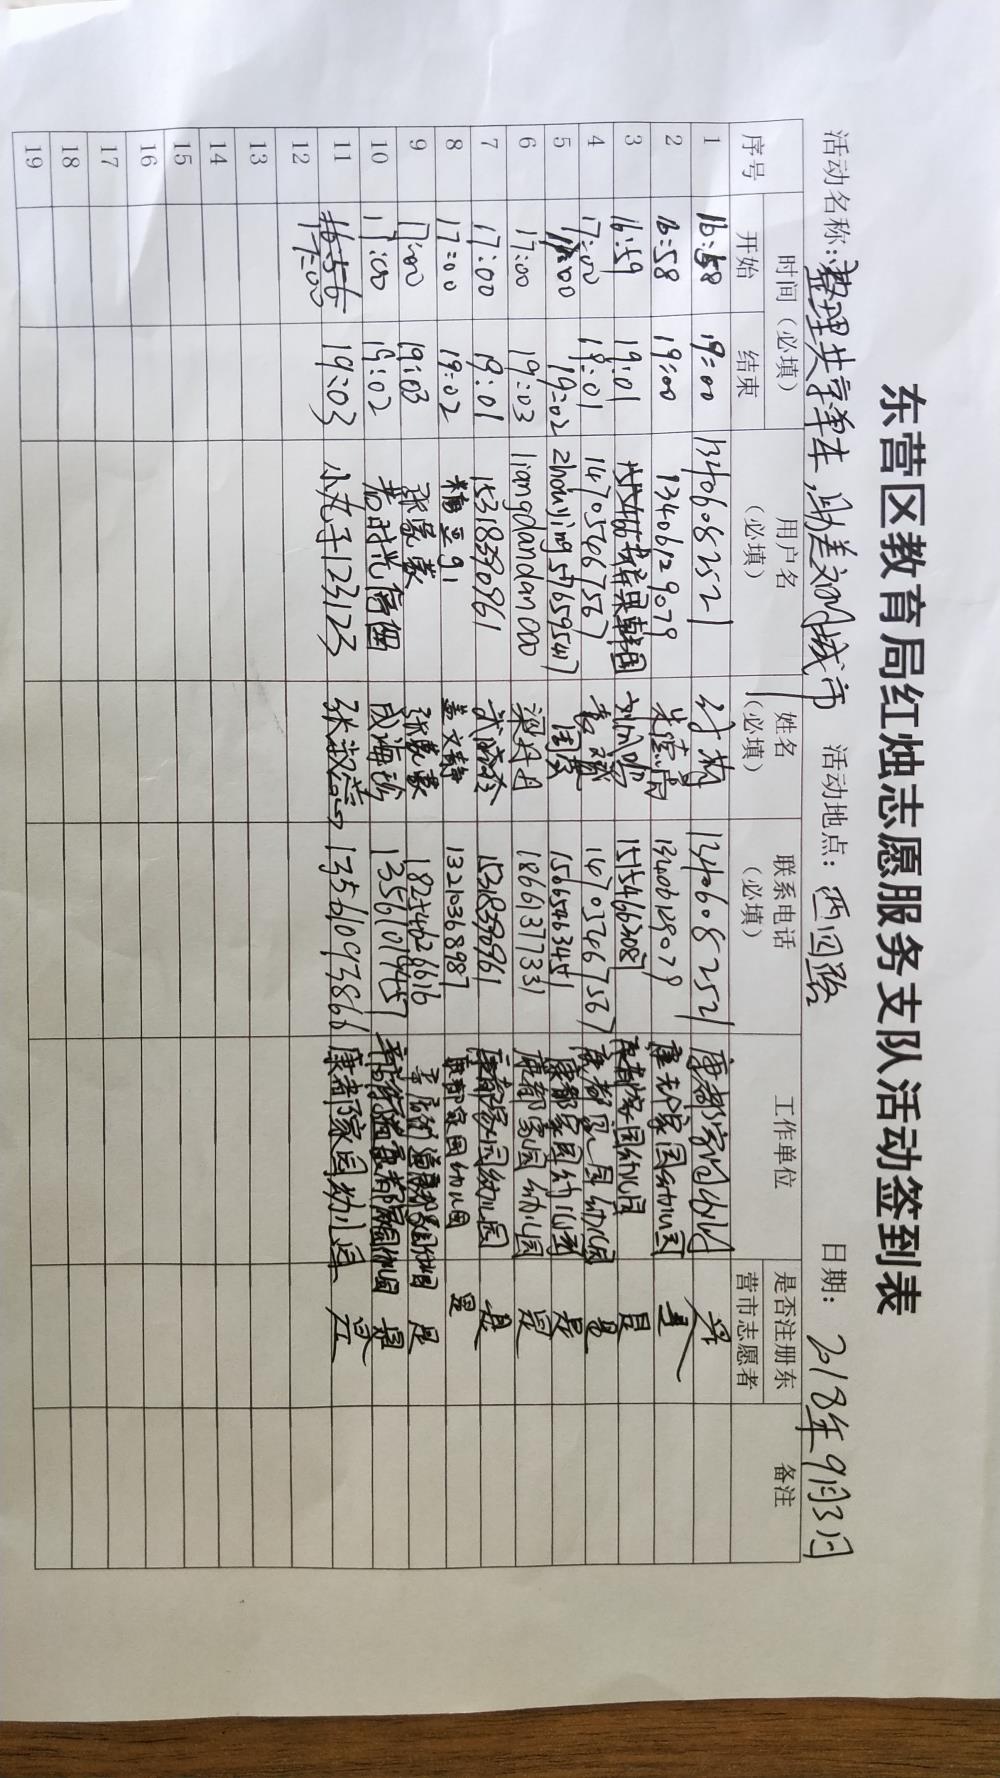 东营区教育局红烛志愿服务支队活动签到表
活动名称：整理共享单车，助美文明城市 活动地点：西四路 日期：2018年9月3日
序号 时间（必填） 用户名（必填） 姓名（必填） 联系电话（必填） 工作单位 是否注册东营市志愿者 备注
开始 结束
1 16:58 19:00 13406082521 13406082521 康都家园幼儿园 是
2 16:58 19:00 13406129079 13406129079 康都家园幼儿园 是
3 16:59 19:01 1554662087 康都家园幼儿园 是
4 17:00 19:01 14705467567 14705467567 康都家园幼儿园 是
5 17:00 19:02 zhouying57659547 周莹 15665463451 康都家园幼儿园 是
6 17:00 19:03 liangdandan000 梁丹丹 18661377331 康都家园幼儿园 是
7 17:00 19:01 15318390961 15318390961 康都家园幼儿园 是
8 17:00 19:02 糖豆91 盖文静 13210368987 康都家园幼儿园 是
9 17:00 19:03 张爱蒙 张爱蒙 18254626616 康都家园幼儿园 是
10 17:00 19:02 若时光倩细 成海玲 13561017457 康都家园幼儿园 是
11 17:00 19:03 小丸子123123 13561093866 康都家园幼儿园 是
12
13
14
15
16
17
18
19